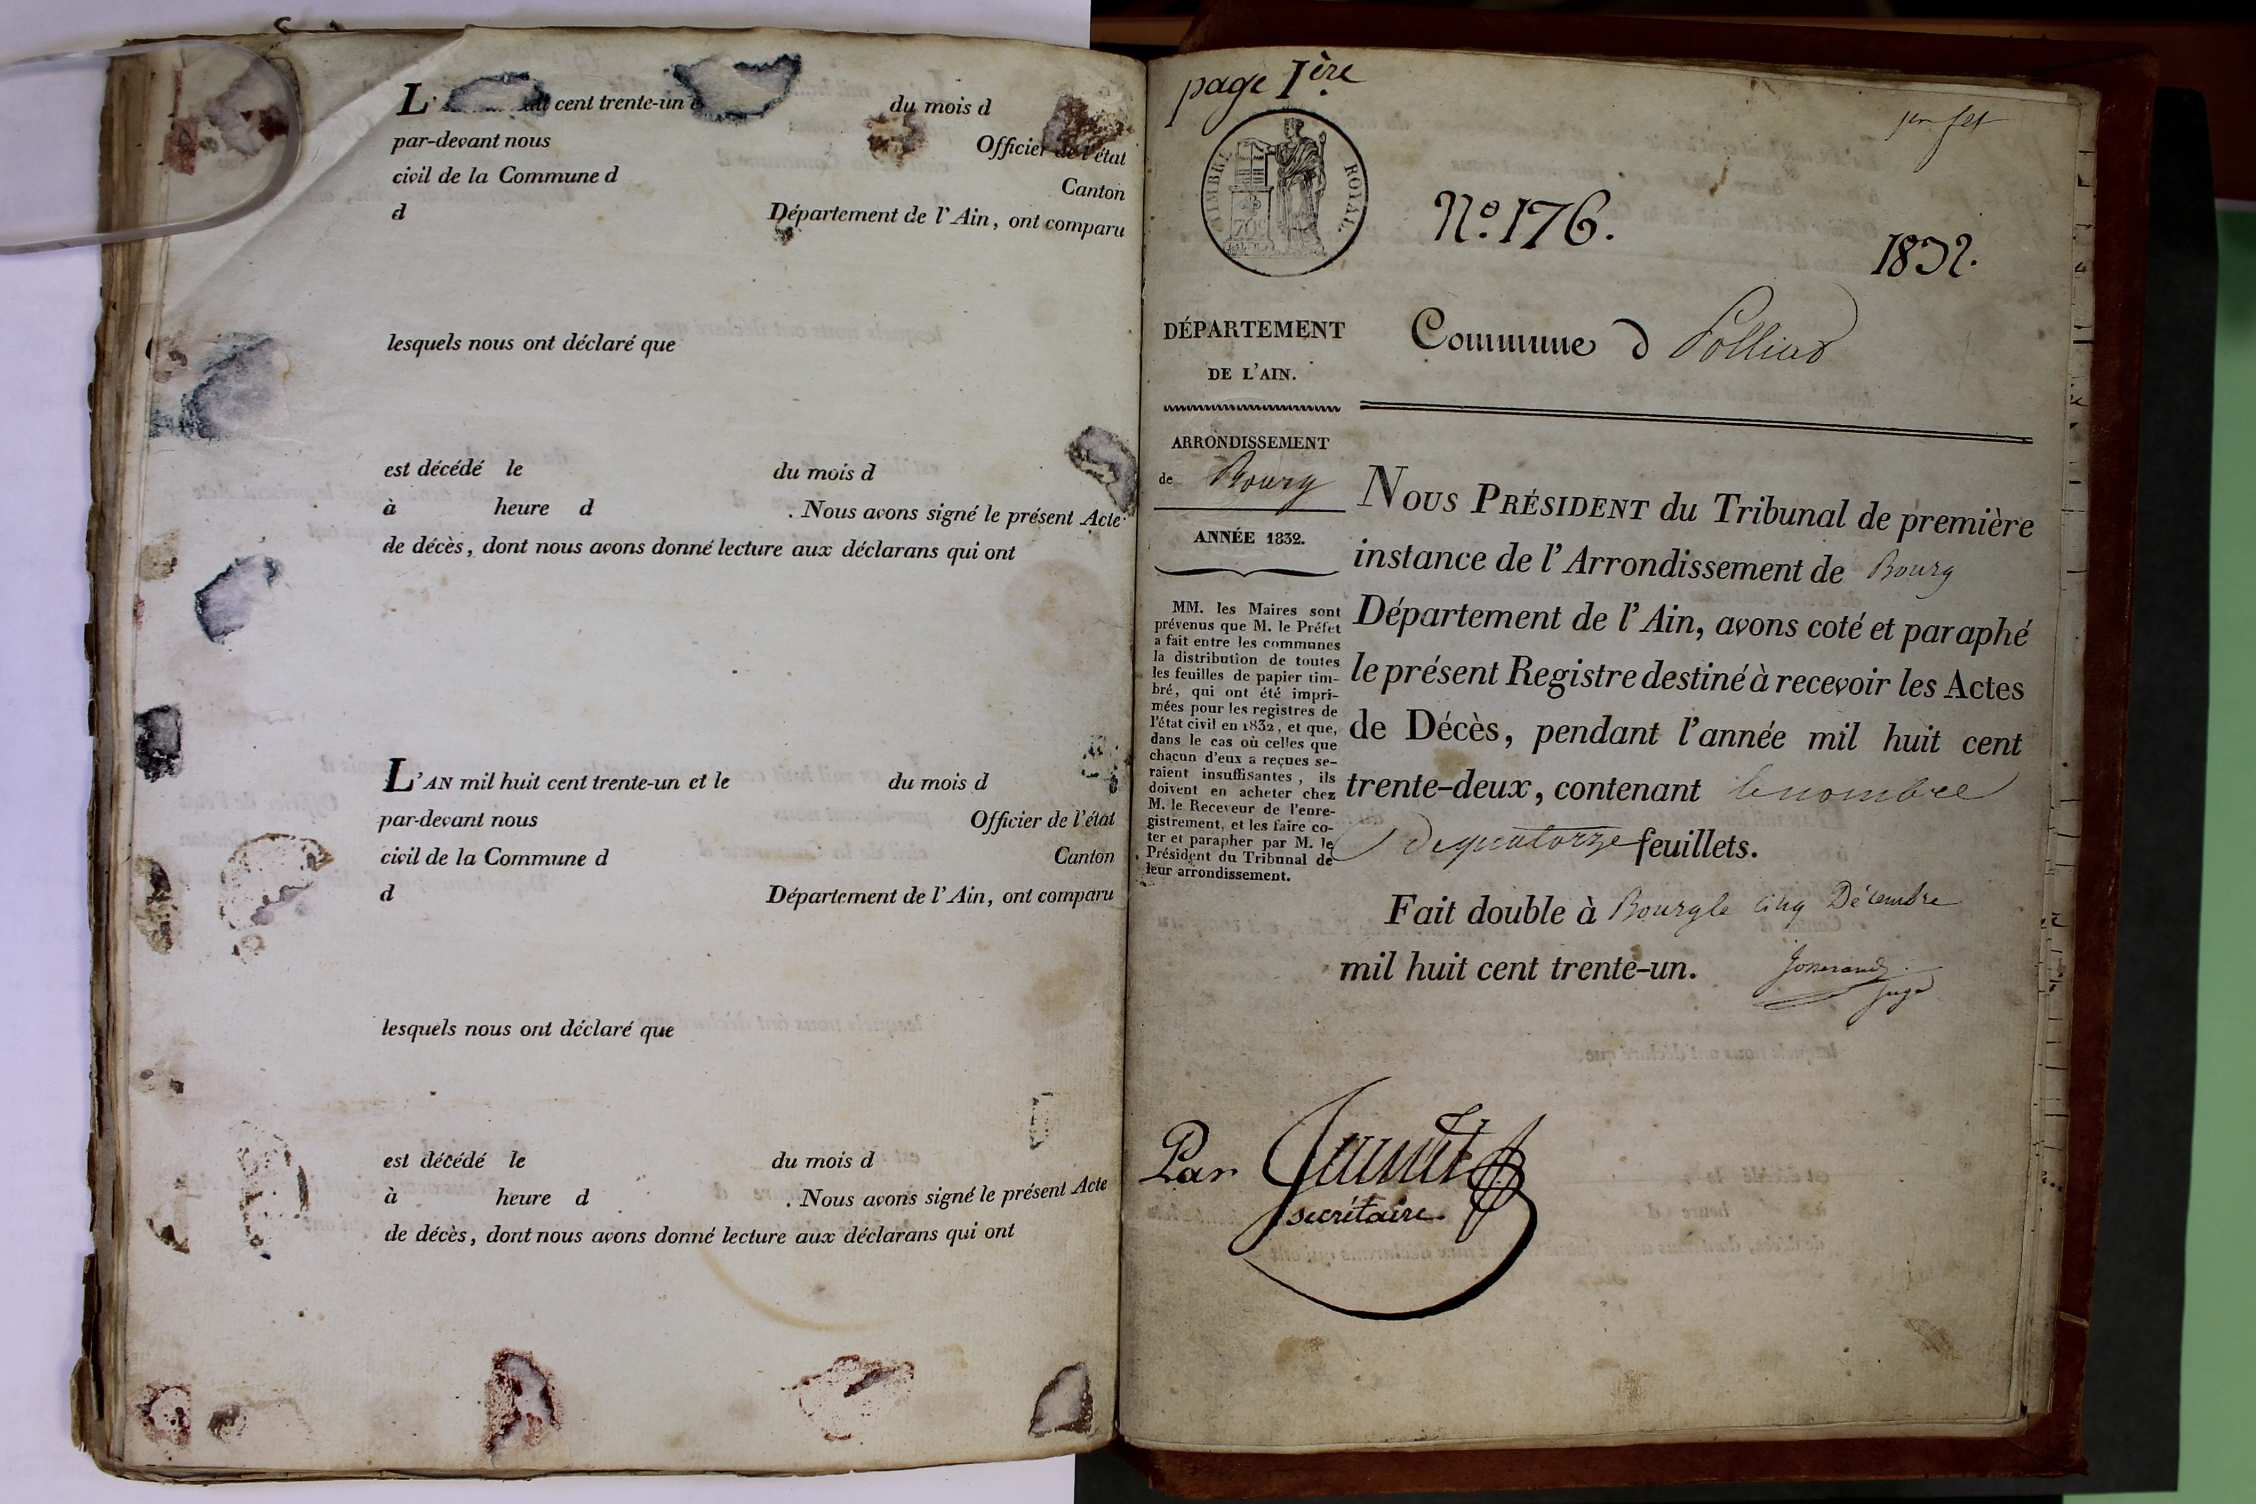 L' cent trente-un du mois d
par-devant nous Officier de l'état
civil de la Commune d Canton
d Département de l'Ain, ont comparu
lesquels nous ont déclaré que
est décédé le du mois d
à heure d . Nous avons signé le présent Acte
de décès, dont nous avons donné lecture aux déclarans qui ont
L'AN mil huit cent trente-un et le du mois d
par-devant nous Officier de l'état
civil de la Commune d Canton
d Département de l'Ain, ont comparu
lesquels nous ont déclaré que
est décédé le du mois d
à heure d . Nous avons signé le présent Acte
de décès, dont nous avons donné lecture aux déclarans qui ont
page 1ère
TIMBRE ROYAL
N.° 176.
1832.
DÉPARTEMENT
DE L'AIN.
Commune d Polliat
ARRONDISSEMENT
de Bourg
ANNÉE 1832.
MM. les Maires sont
prévenus que M. le Préfet
a fait entre les communes
la distribution de toutes
les feuilles de papier tim-
bré, qui ont été impri-
mées pour les registres de
l'état civil en 1832, et que,
dans le cas où celles que
chacun d'eux a reçues se-
raient insuffisantes, ils
doivent en acheter chez
M. le Receveur de l'enre-
gistrement, et les faire co-
ter et parapher par M. le
Président du Tribunal de
leur arrondissement.
NOUS PRÉSIDENT du Tribunal de première
instance de l'Arrondissement de Bourg
Département de l'Ain, avons coté et paraphé
le présent Registre destiné à recevoir les Actes
de Décès, pendant l'année mil huit cent
trente-deux, contenant le nombre
de quatorze feuillets.
Fait double à Bourg le cinq Décembre
mil huit cent trente-un.
juge
Par
secrétaire.